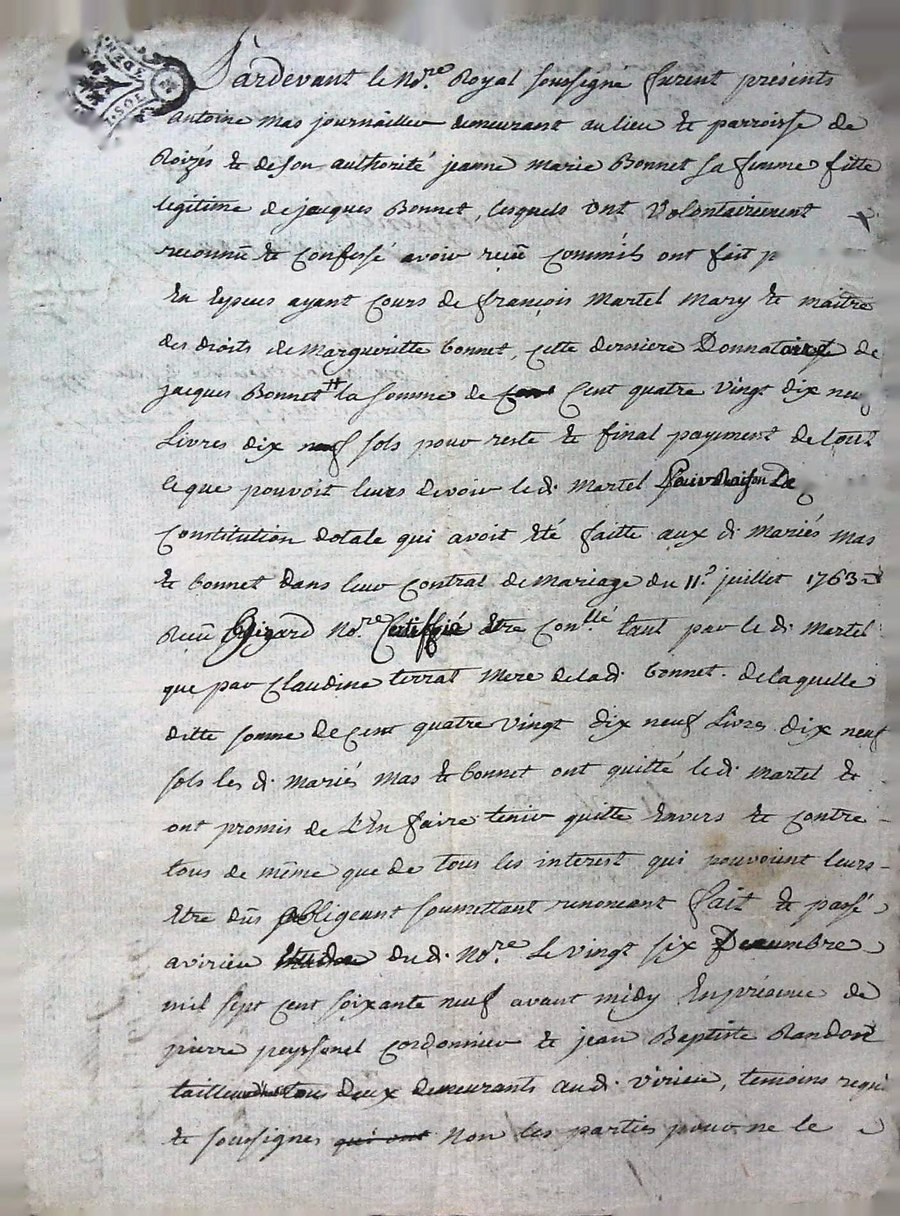 Pardevant le No.re Royal soussigné furent présents
Antoine mas journaillier demeurant au lieu & parroisse de
Roizés & de son authorité jeanne marie Bonnet sa femme fille
legitime de jacques Bonnet, lesquels ont Volontairement
reconnü & confessé avoir reçeü comme ils ont fait p
En Espeus ayant cours de françois martel mary & maitre
des droits de margueritte bonnet, cette derniere Donnatairesse de
jacques Bonnet la somme de Cent quatre vingt dix neuf
Livres dix neuf sols pour reste & final payement de tout
Ceque pouvoit leurs devoir le d. martel Pour Raison De
Constitution dotale qui avoit Eté faitte aux d. mariés mas
& bonnet dans leur Contrat de mariage du 11.e juillet 1763
Reçeü No.re Certiffié être Con.llé tant par le d. martel
que par Claudine terrat mere de lad. bonnet. de laquelle
ditte somme de Cent quatre vingt dix neuf Livres dix neuf
sols les d. mariés mas & bonnet ont quitté le d. martel &
ont promis de L'En faire tenir quitte Envers & contre
tous de même que de tous les interest qui pouvoient leurs
Etre dûs obligeant soumettant renoncant fait & passé
a virieu Etude du d. No.re Le vingt six Decembre
mil sept Cent soixante neuf avant midy En présence de
pierre peyssonel cordonnier & jean Baptiste Randon
tailleur tous deux demeurants au d. virieu, temoins requi
& soussignes qui ont Non les parties pour ne le